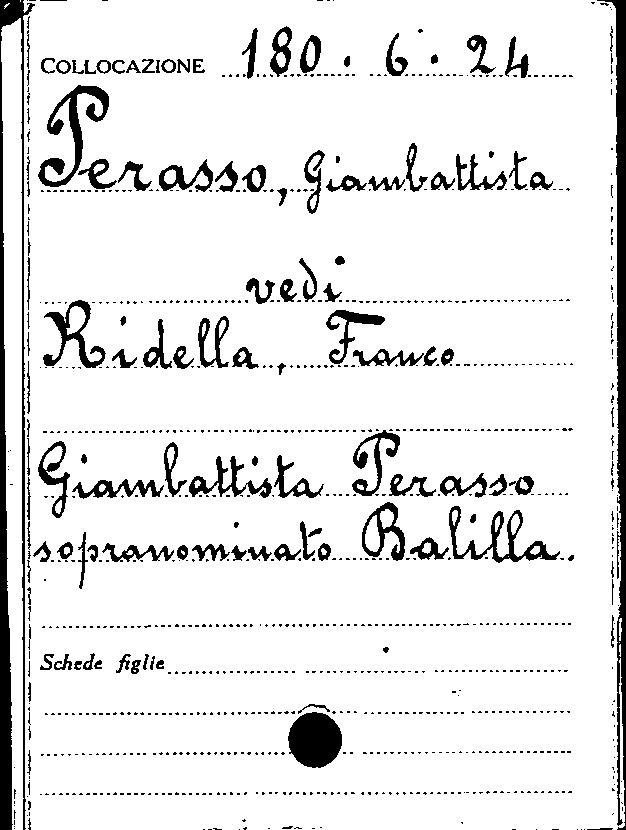 COLLOCAZIONE 180 . 6 . 24
Perasso, Giambattista
vedi
Ridella, Franco
Giambattista Perasso
sopranominato Balilla.
Schede figlie